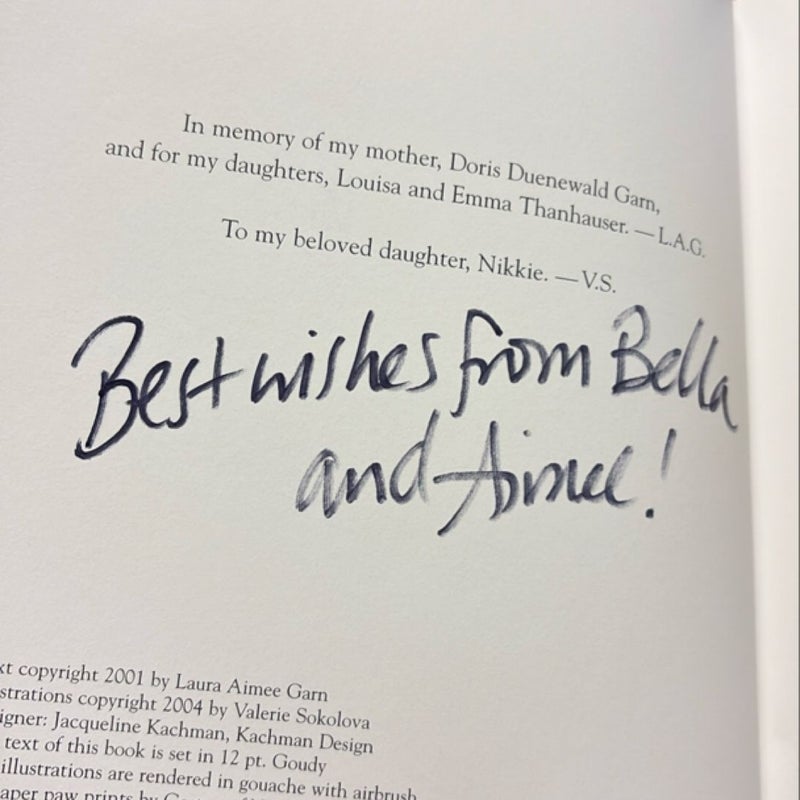 In memory of my mother, Doris Duenewald Garn,
and for my daughters, Louisa and Emma Thanhauser. — L.A.G.
To my beloved daughter, Nikkie. — V.S.
Best wishes from Bella
and Aimee!
xt copyright 2001 by Laura Aimee Garn
strations copyright 2004 by Valerie Sokolova
igner: Jacqueline Kachman, Kachman Design
text of this book is set in 12 pt. Goudy
illustrations are rendered in gouache with airbrush
aper paw prints by